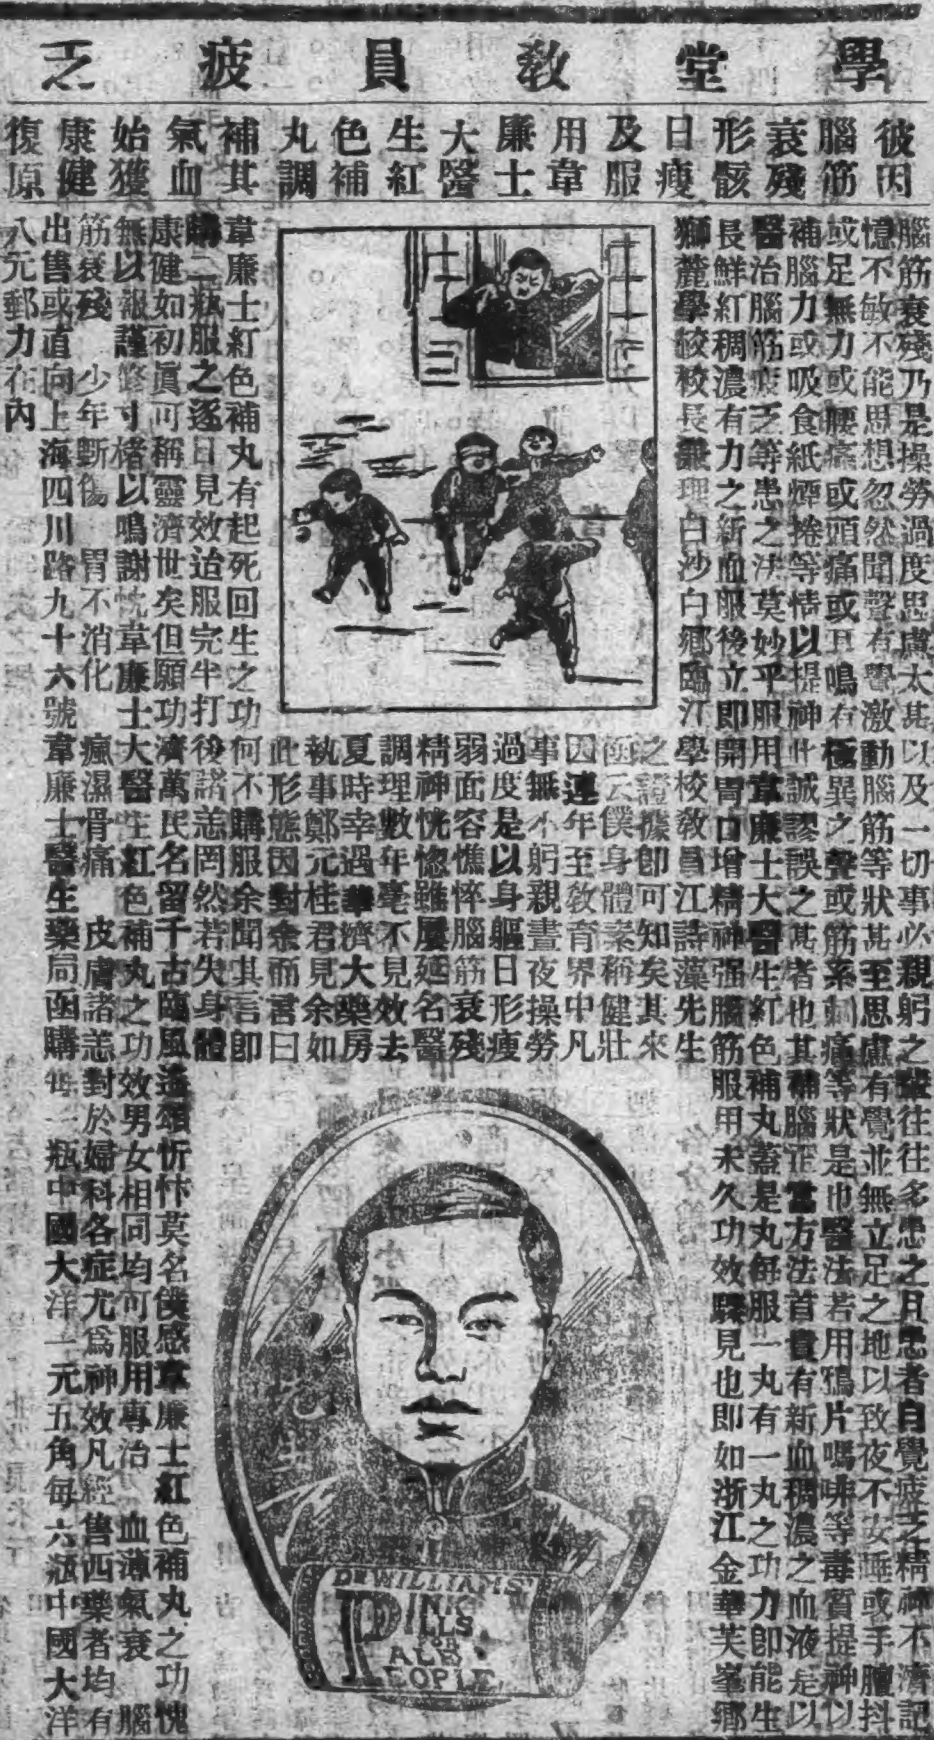 學堂教員疲乏
彼因腦筋衰殘形骸日瘦及服用韋廉士大醫生紅色補丸調補其氣血始獲康健復原
腦筋衰殘乃是操勞過度思慮太甚以及一切事必親躬之輩往往多患之且患者自覺疲乏精神不濟記
憶不敏不能思想忽然聞聲有覺激動腦筋等狀甚至思慮有覺並無立足之地以致夜不安睡或手膻抖
或足無力或腰痛或頭痛或耳鳴有極異之聲或筋系刺痛等狀是也醫法若用鴉片嗎啡等毒質提神以
補腦力或吸食紙煙捲等情以提神此誠謬誤之甚者也其補腦正當方法首貴有新血稠濃之血液是以
醫治腦筋疲乏等患之法莫妙乎服用韋廉士大醫生紅色補丸蓋是丸每服一丸有一丸之功力卽能生
長鮮紅稠濃有力之新血服後立卽開胃口增精神强腦筋服用未久功效驟見也卽如浙江金華芙峯鄉
獅麓學校校長兼理白沙白鄉臨江學校教員江詩藻先生
之證據卽可知矣其來
函云僕身體素稱健壯
因連年至教育界中凡
事無不躬親晝夜操勞
過度是以身軀日形瘦
弱面容憔悴腦筋衰殘
精神恍惚雖屢延名醫
調理數年毫不見效去
夏時幸遇華濟大藥房
執事鄭元桂君見余如
此形態因對余而言曰
韋廉士紅色補丸有起死回生之功何不購服余聞其言卽
購二瓶服之逐日見效迨服完半打後諸恙罔然若失身體
康健如初眞可稱靈濟世矣但願功濟萬民名留千古臨風遙頌忻忭莫名僕感韋廉士紅色補丸之功愧
無以報謹修寸楮以鳴謝忱韋廉士大醫生紅色補丸之功效男女相同均可服用專治 血薄氣衰 腦
筋衰殘 少年斷傷 胃不消化 瘋濕骨痛 皮膚諸恙對於婦科各症尤爲神效凡經售西藥者均有
出售或直向上海四川路九十六號韋廉士醫生藥局函購每一瓶中國大洋一元五角每六瓶中國大洋
八元郵力在內
DR WILLIAMS'
PINK
PILLS
FOR
PALE
PEOPLE